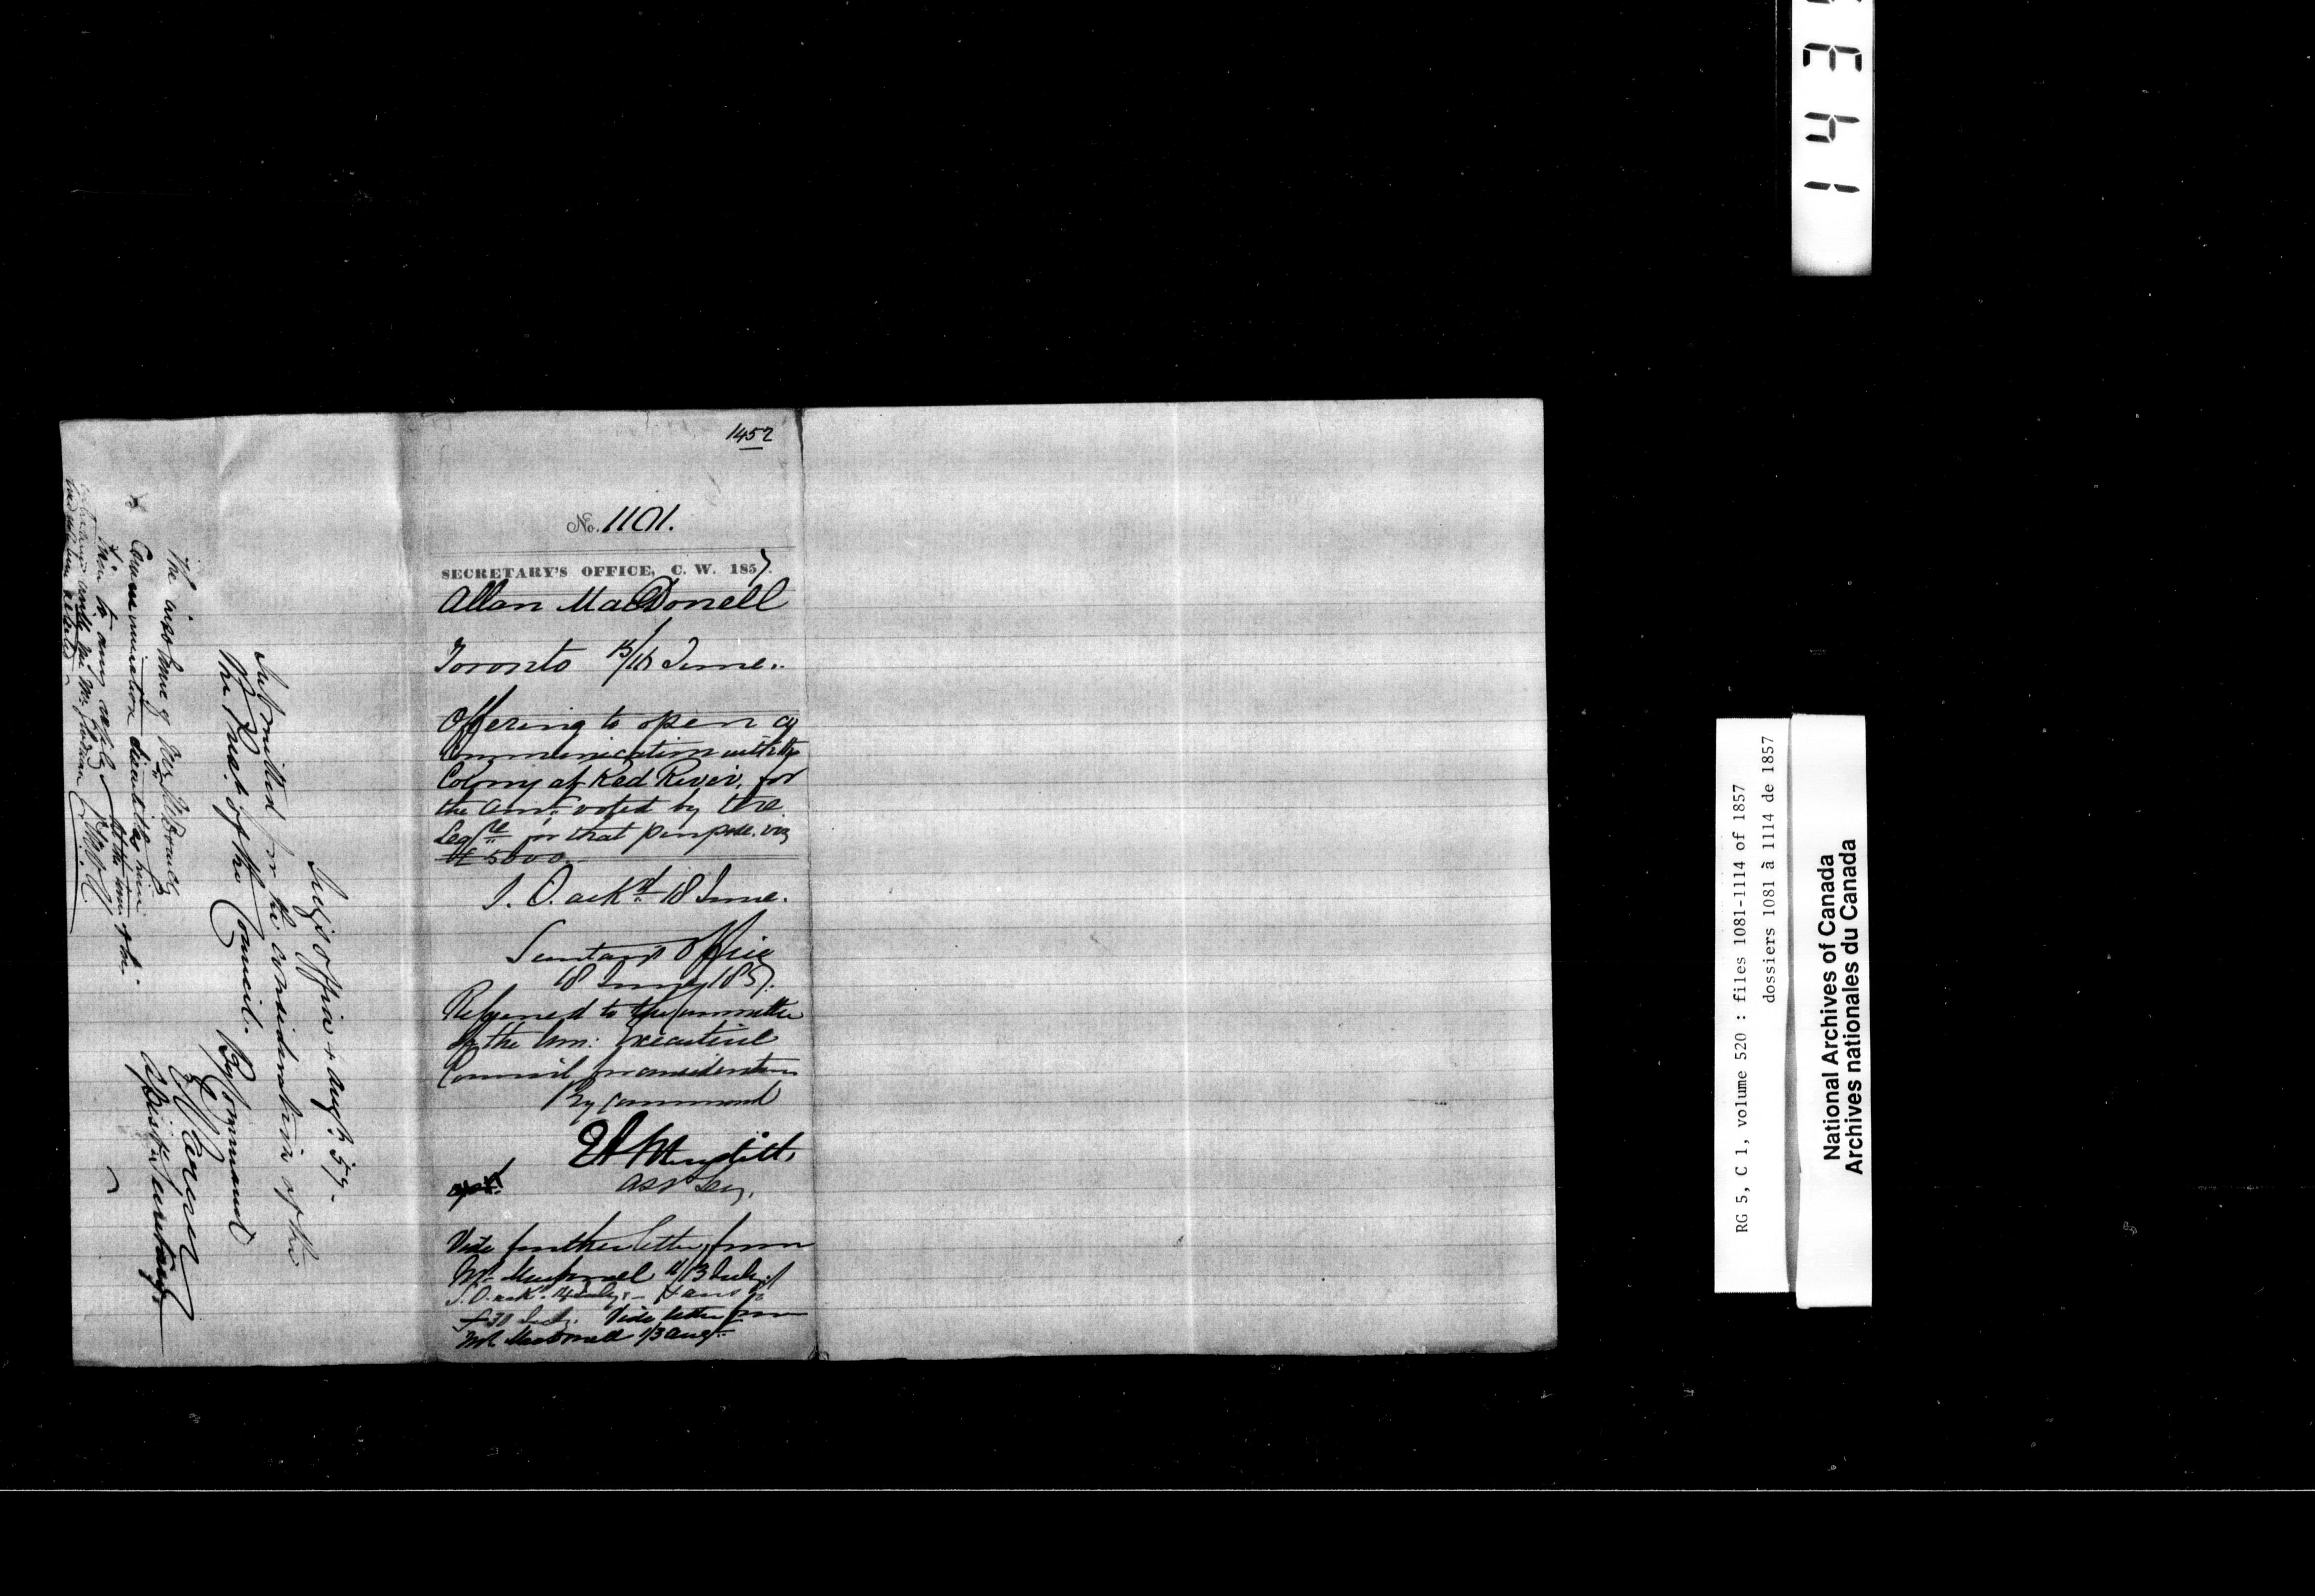 1452
No. 1101.
SECRETARY'S OFFICE, C. W. 1857.
Allan MacDonell
Toronto 15/16 June.
Offering to open a
Communication with the
Colony at Red River, for
the amt. voted by the
Legre for that purpose. viz
£5000.
S. O. ackd 18 June.
Secretary's Office
18 June 1857.
Referred to the Committee
of the Hon: Executive
Council for consideration
By Command
E A Meredith
Asst Secy.
Vide further letter from
Mr. Macdonell 11/13 July
S. O. ackd. 14 July. - & ansd
30 July. Vide letter from
Mr Macdonell 1/3 Augt.
Secy's Office 4 Augt. 57.
Submitted for the consideration of the
The Presid. of the Council.
By Command
E Parent
Assist. Secretary.
The insolence of Mr McDonell's
Communication disentitles him
to any reply
1 4 3
RG 5, C 1, volume 520 : files 1081-1114 of 1857
dossiers 1081 à 1114 de 1857
National Archives of Canada
Archives nationales du Canada